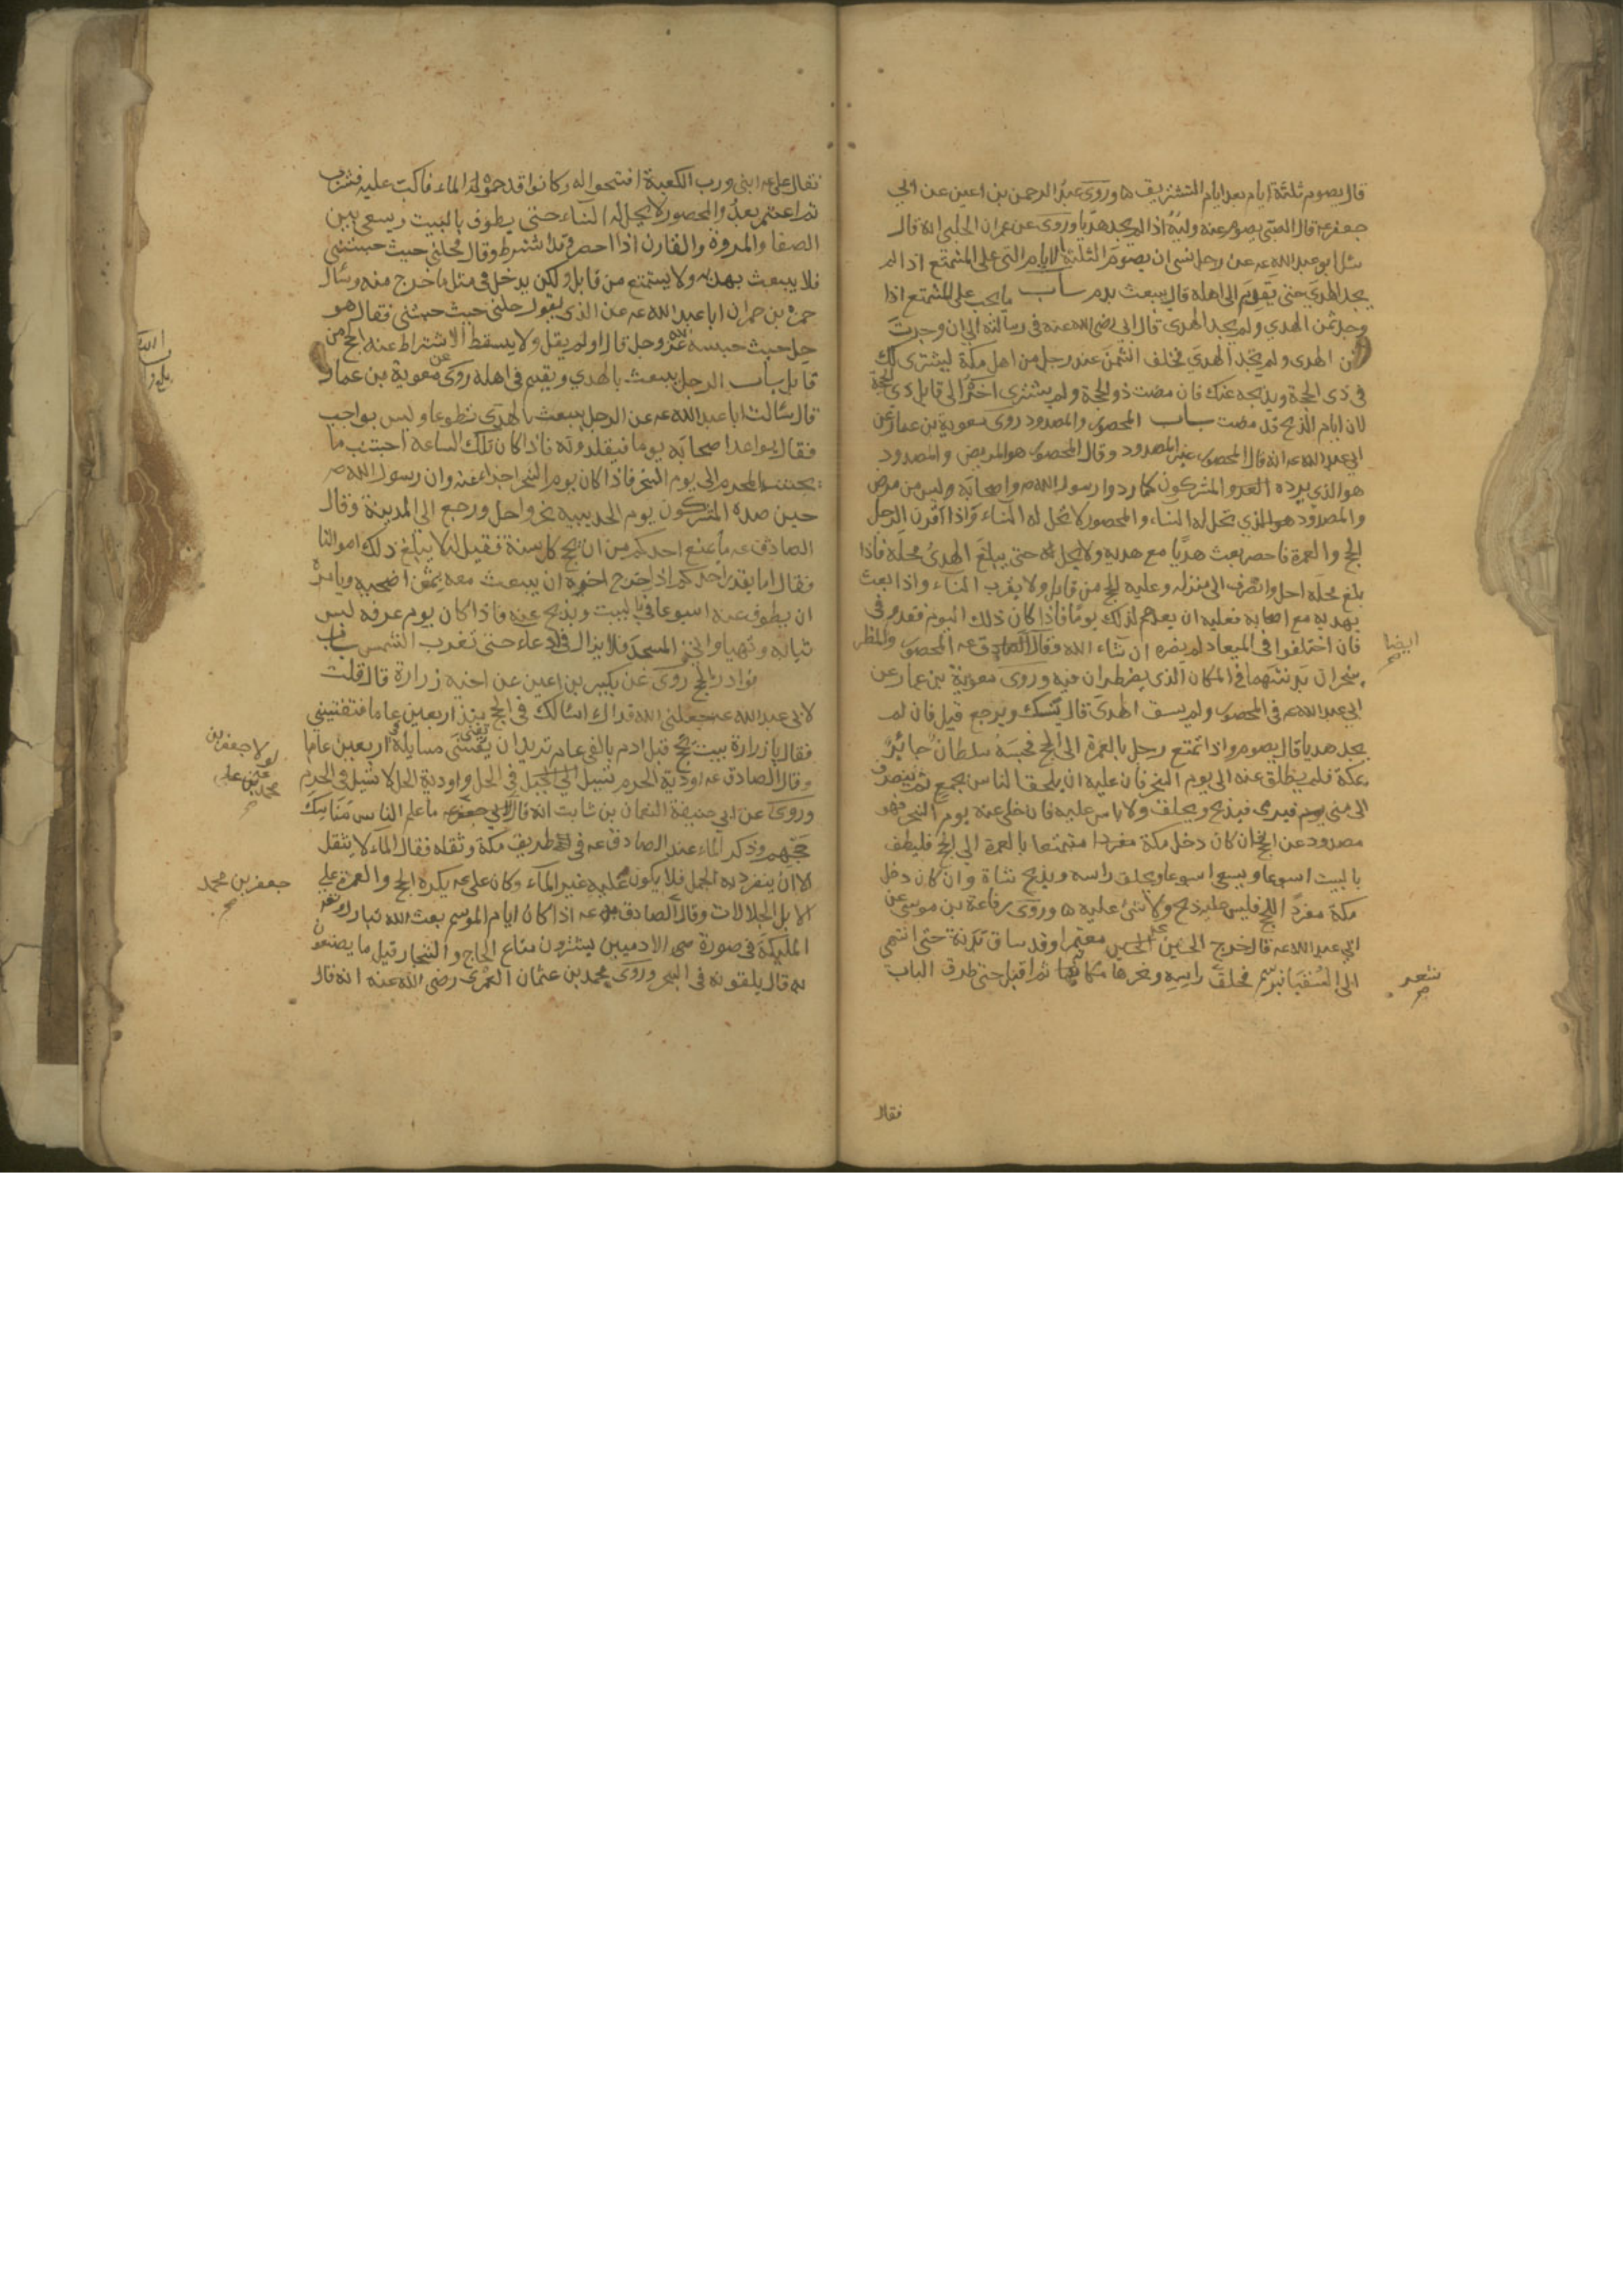 قال يصوم ثلثة ايام بعد ايام التشريق وروى عبد الرحمن بن اعين عن ابي
جعفر عه قال الصبي يصوم عنه وليه اذا لم يجد هديا وروى عن عمران الحلبي انه قال
سئل ابو عبد الله عه عن رجل نسي ان يصوم الثلثة الايام التي على المتمتع اذا لم
يجد الهدي حتى يقدم الى اهله قال يبعث بدم باب ما يجب على المتمتع اذا
وجد ثمن الهدي ولم يجد الهدى قال ابى رضى الله عنه في رسالته الي ان وجدت
ثمن الهدى ولم تجد الهدي فخلف الثمن عند رجل من اهل مكة ليشترى لك
فى ذى الحجة ويذبحه عنك فان مضت ذو الحجة ولم يشترى اخر الى قابل ذي الحجة
لان ايام الذبح قد مضت باب المحصور والمصدود روى معوية بن عمار عن
ابي عبد الله عه انه قال المحصور غير المصدود وقال المحصور هو المريض والمصدود
هو الذي يرده العدو المشركون كما ردوا رسول الله ص واصحابه وليس من مرض
والمصدود هو الذي تحل له النساء والمحصور لا تحل له النساء واذا اقرن الرجل
الحج والعمرة فاحصر بعث هديا مع هديه ولا يحل حتى يبلغ الهدى محله فاذا
بلغ محله احل وانصرف الى منزله وعليه الحج من قابل ولا يقرب النساء واذا بعث
بهديه مع اصحابه فعليه ان يعدهم لذلك يوما فاذا كان ذلك اليوم فقد وفى
فان اختلفوا في الميعاد لم يضره ان شاء الله وقال الصادق عه المحصور والمضطر
ينحران بدنتهما في المكان الذى يضطران فيه وروى معوية بن عمار عن
ابي عبد الله عه فى المحصور ولم يسق الهدى قال ينسك ويرجع قيل فان لم
يجد هديا قال يصوم واذا تمتع رجل بالعمرة الى الحج فحبسه سلطان جائر
بمكة فلم يطلق عنه الى يوم النحر فان عليه ان يلحق الناس بجمع ثم ينصرف
الى منى فيرمى فيذبح ويحلق ولا باس عليه فان خلى عنه يوم النحر فهو
مصدود عن الحج ان كان دخل مكة متمتعا بالعمرة الى الحج فليطف
بالبيت اسبوعا ويسعى اسبوعا ويحلق راسه ويذبح شاة وان كان دخل
مكة مفردا للحج فليس عليه ذبح ولا شئ عليه وروى رفاعة بن موسى عن
ابي عبد الله عه قال خرج الحسين معتمرا وقد ساق بدنة حتى انتهى
الى السقيا فبرسم فحلق راسه ونحرها مكانها ثم اقبل حتى طرق الباب
ايضا
فقال
فقال علي عه ابنى ورب الكعبة افتحوا له وكانوا قد حموه له الماء فاكب عليه فشرب
ثم اعتمر بعد والمحصور لا يحل له النساء حتى يطوف بالبيت ويسعى بين
الصفا والمروة والقارن اذا احصر وقد اشترط وقال فحلنى حيث حبستنى
فلا يبعث بهديه ولا يستمتع من قابل ولكن يدخل فى مثل ما خرج منه وسأل
حمزة بن حمران ابا عبد الله عه عن الذى يقول حلنى حيث حبستنى فقال هو
حل حيث حبسه الله عز وجل قال او لم يقل ولا يسقط الاشتراط عنه الحج من
قابل باب الرجل يبعث بالهدي ويقيم فى اهله روى معوية بن عمار
قال سألت ابا عبد الله عه عن الرجل يبعث بالهدى تطوعا وليس بواجب
فقال يواعد اصحابه يوما فيقلدونه فاذا كان تلك الساعة اجتنب ما
يجتنب المحرم الى يوم النحر فاذا كان يوم النحر اجزا عنه وان رسول الله ص
حين صده المشركون يوم الحديبية نحر واحل ورجع الى المدينة وقال
الصادق عه ما يمنع احدكم من ان يحج كل سنة فقيل له لا يبلغ ذلك اموالنا
فقال اما يقدر احدكم اذا خرج اخوه ان يبعث معه بثمن اضحيه ويامره
ان يطوف عنه اسبوعا بالبيت ويذبح عنه فاذا كان يوم عرفة لبس
ثيابه وتهيأ واتى المسجد فلا يزال فى الدعاء حتى تغرب الشمس باب
نوادر الحج روى عن بكير بن اعين عن اخيه زرارة قال قلت
لابى عبد الله عه جعلنى الله فداك اسألك فى الحج منذ اربعين عاما فتفتينى
فقال يا زرارة بيت يحج قبل ادم بالفى عام تريد ان يفنى مسايله فى اربعين عاما
وقال الصادق عه اودية الحرم تسيل فى الحل واودية الحل لا تسيل فى الحرم
وروى عن ابى حنيفة النعمان بن ثابت انه قال ما علم الناس مناسك
حجهم وذكر الماء عند الصادق عه فى طريق مكة وثقله فقال الماء لا يثقل
الا ان ينفرد به الجمل فلا يكون عليه غير الماء وكان علي عه يكره الحج والعمرة على
الابل الجلالات وقال الصادق عه اذا كان ايام الموسم بعث الله تبارك وتعالى
المليكة فى صورة الادميين يشترون متاع الحاج والتجار قيل ما يصنعون
به قال يلقونه فى البحر وروى محمد بن عثمان العمرى رضى الله عنه انه قال
لولا جعفر بن
محمد بن على
جعفر بن محمد